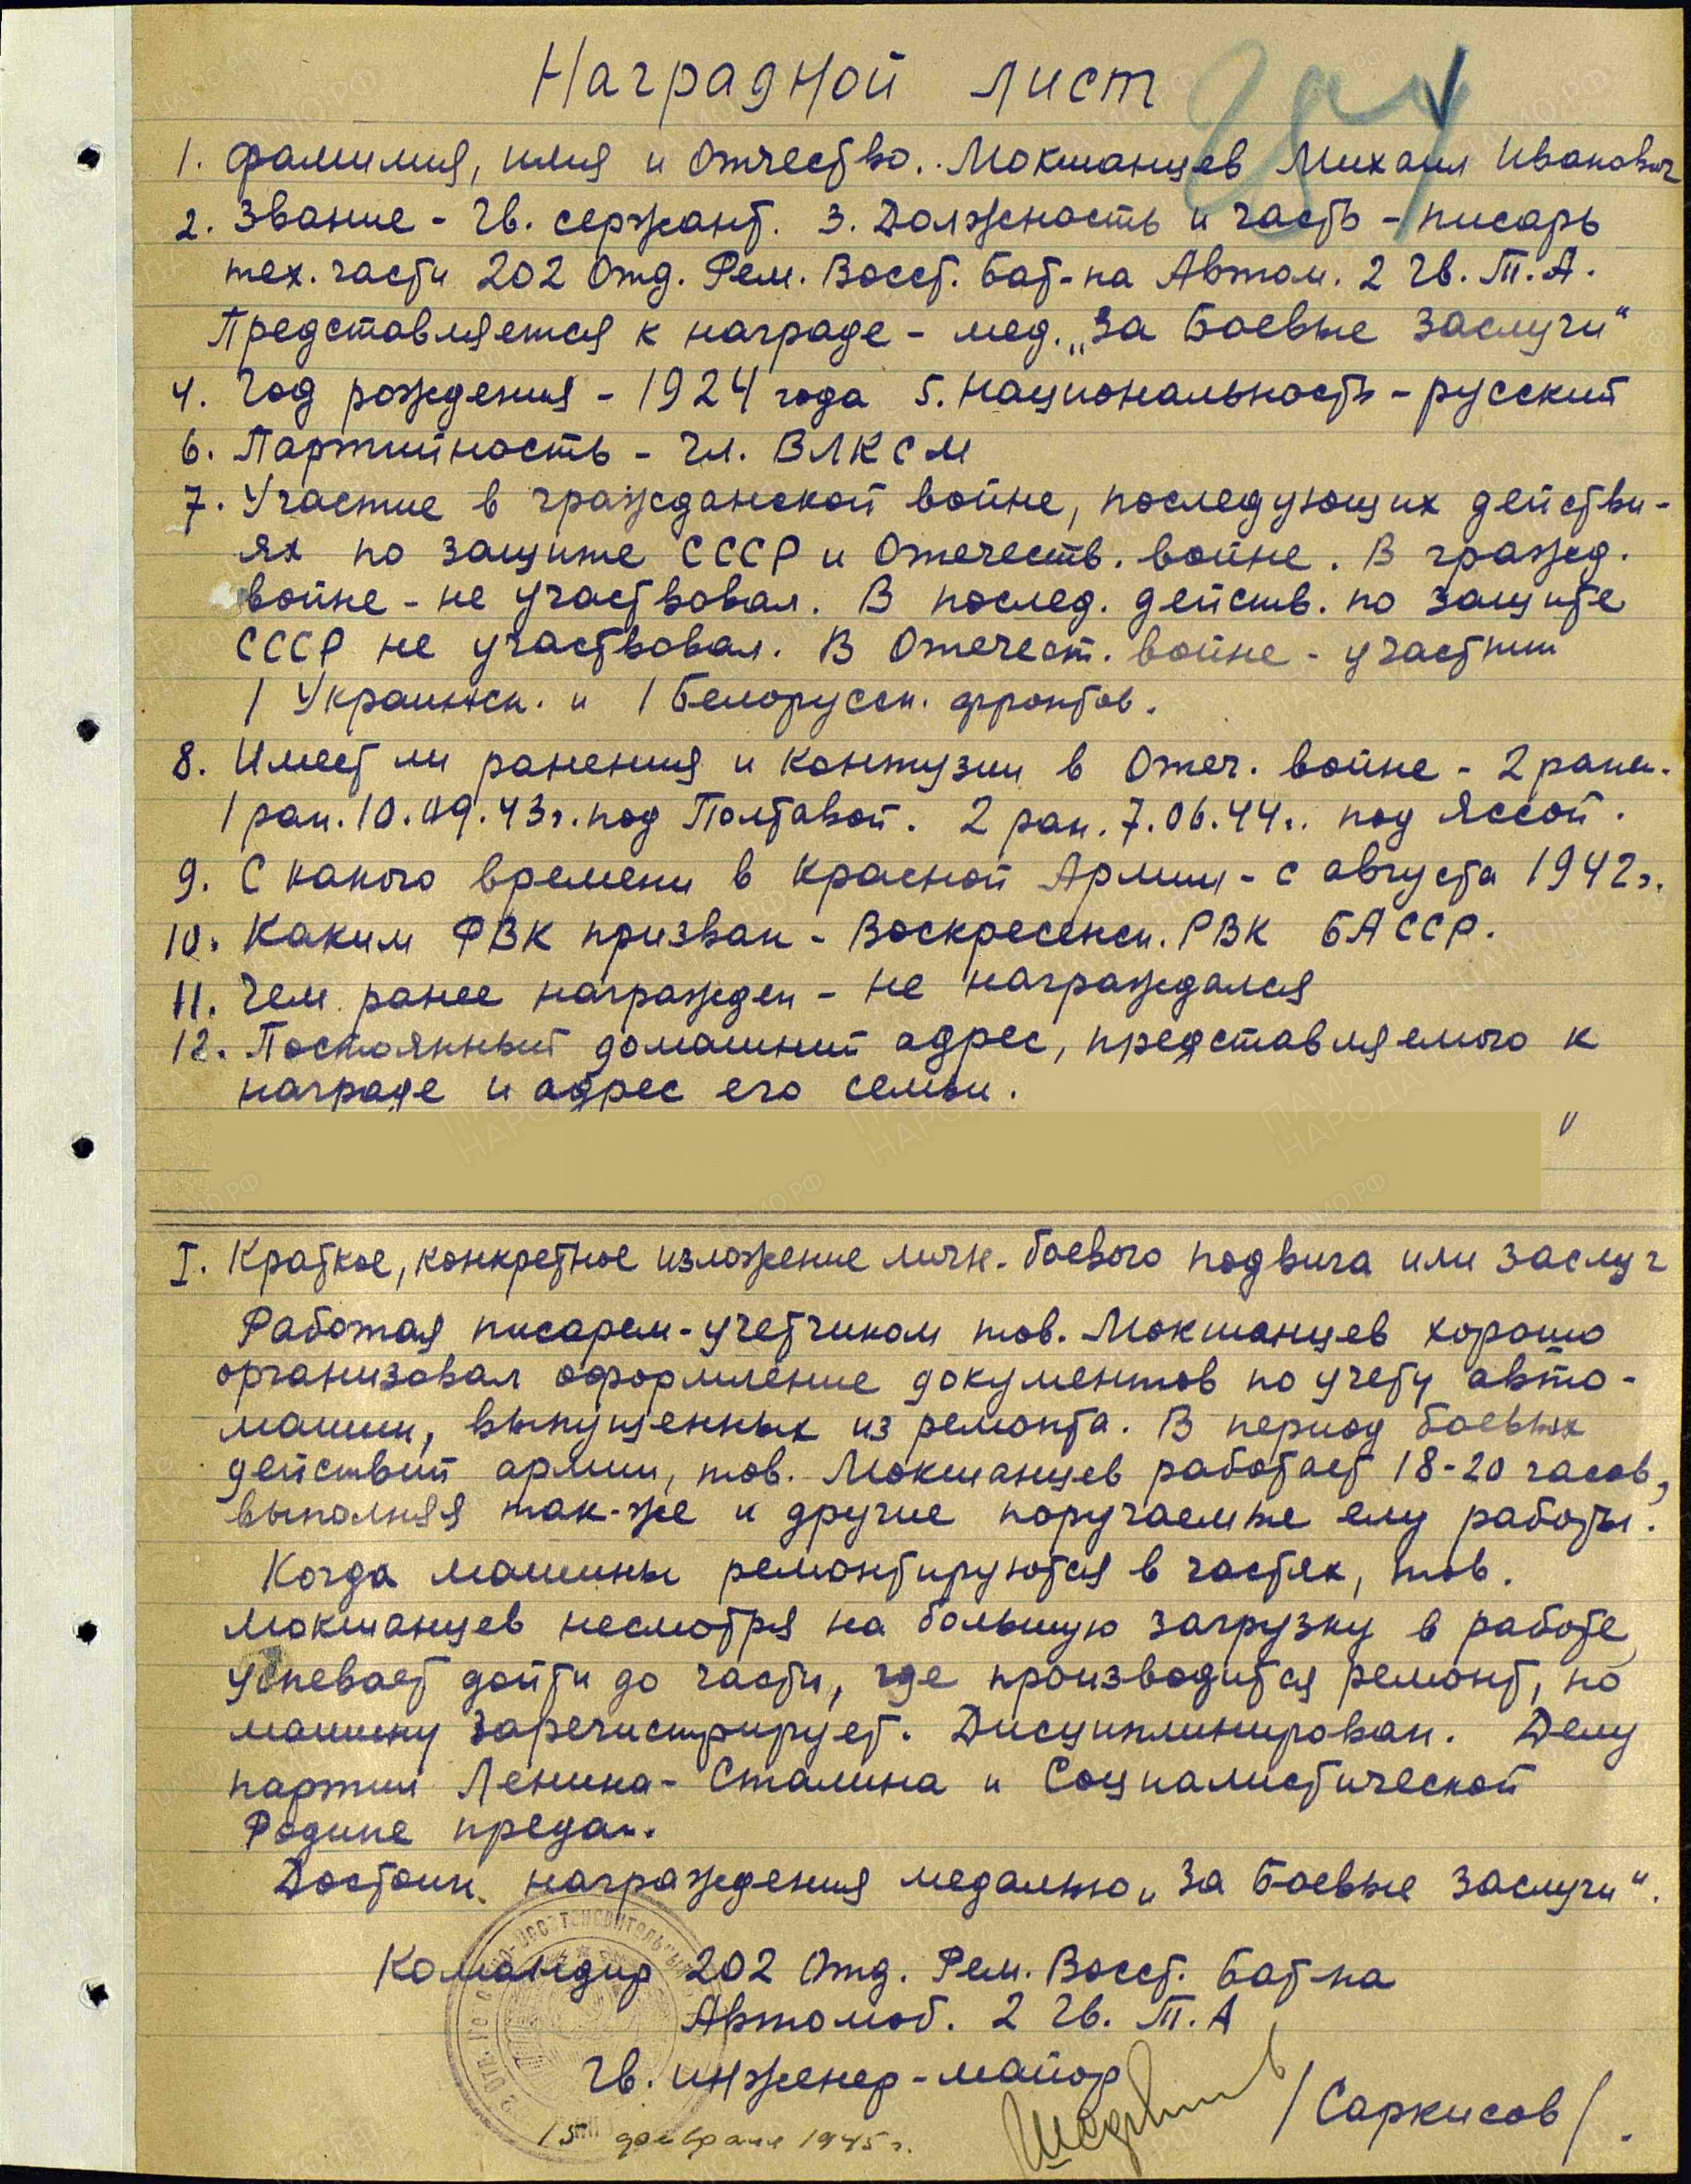 Наградной лист
1. Фамилия, имя и Отчество.. Мокшанцев Михаил Иванович
2. Звание - Гв. сержант. 3. Должность и часть - писарь
тех. части 202 Отд. Рем. Восст. Бат-на Автом. 2 Гв. Т.А.
Представляется к награде - мед. „За Боевые Заслуги“
4. Год рождения - 1924 года 5. Национальность - русский
6. Партийность - Чл. ВЛКСМ
7. Участие в гражданской войне, последующих действи-
ях по защите СССР и Отечеств. войне. В гражд.
войне - не участвовал. В послед. действ. по защите
СССР не участвовал. В Отечест. войне - участник
1 Украинск. и 1 Белорусск. фронтов.
8. Имеет ли ранения и контузии в Отеч. войне - 2 ранен.
1 ран. 10.09.43г. под Полтавой. 2 ран. 7.06.44г. под Яссой.
9. С какого времени в Красной Армии - с августа 1942г.
10. Каким РВК призван - Воскресенск. РВК БАССР.
11. Чем ранее награжден - не награждался
12. Постоянный домашний адрес, представляемого к
награде и адрес его семьи.
I. Краткое, конкретное изложение личн. боевого подвига или заслуг
Работая писарем-учетчиком тов. Мокшанцев хорошо
организовал оформление документов по учету авто-
машин, выпущенных из ремонта. В период боевых
действий армии, тов. Мокшанцев работает 18-20 часов,
выполняя так-же и другие поручаемые ему работы.
Когда машины ремонтируются в частях, тов.
Мокшанцев несмотря на большую загрузку в работе,
успевает дойти до части, где производится ремонт, но
машину зарегистрирует. Дисциплинирован. Делу
партии Ленина-Сталина и Социалистической
Родине предан.
Достоин награждения медалью „За Боевые Заслуги“.
Командир 202 Отд. Рем. Восст. Бат-на
Автомоб. 2 Гв. Т.А
Гв. инженер-майор
/Саркисов/.
15 февраля 1945 г.